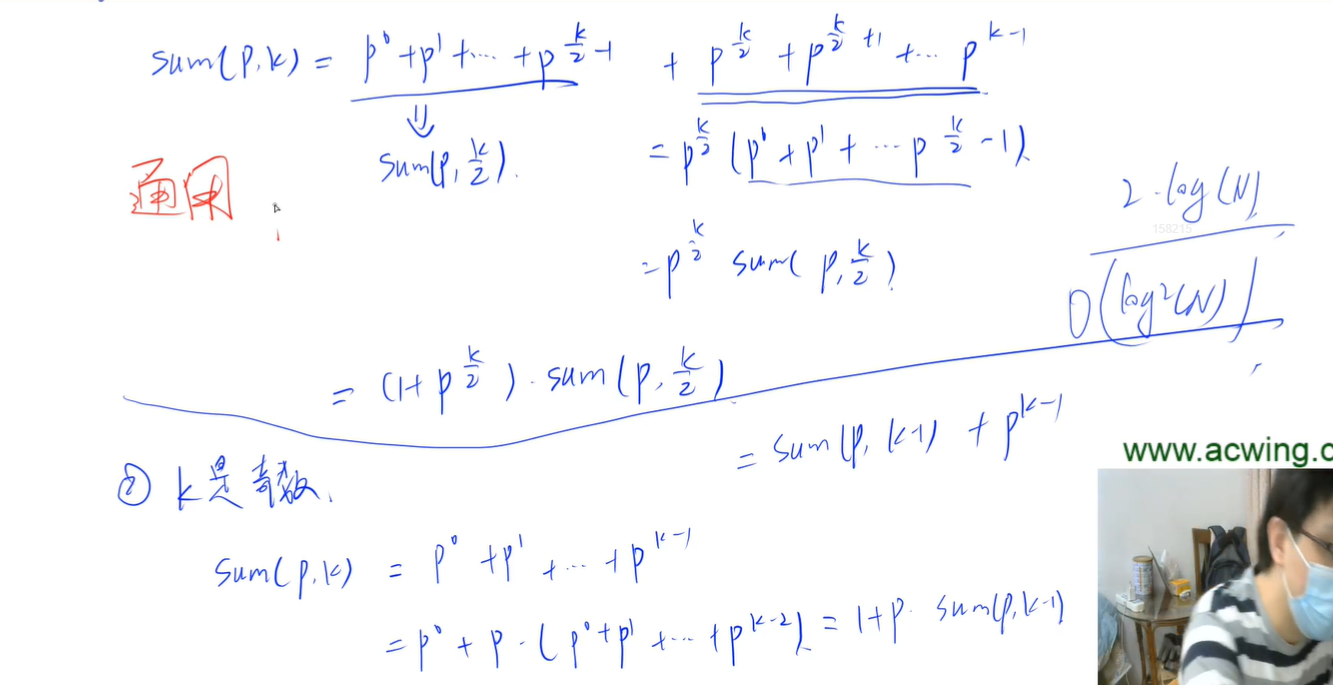 sum(p,k) = p^0 + p^1 + ... + p^{k/2 - 1} + p^{k/2} + p^{k/2 + 1} + ... p^{k-1}
⇓
sum(p, k/2).
= p^{k/2} (p^0 + p^1 + ... p^{k/2 - 1})
通用
2·log(N)
158215
= p^{k/2} sum(p, k/2)
O(log²(N))
= (1 + p^{k/2}) · sum(p, k/2)
= sum(p, k-1) + p^{k-1}
www.acwing.c
② k是奇数.
sum(p,k) = p^0 + p^1 + ... + p^{k-1}
= p^0 + p · (p^0 + p^1 + ... + p^{k-2}) = 1 + p · sum(p, k-1)